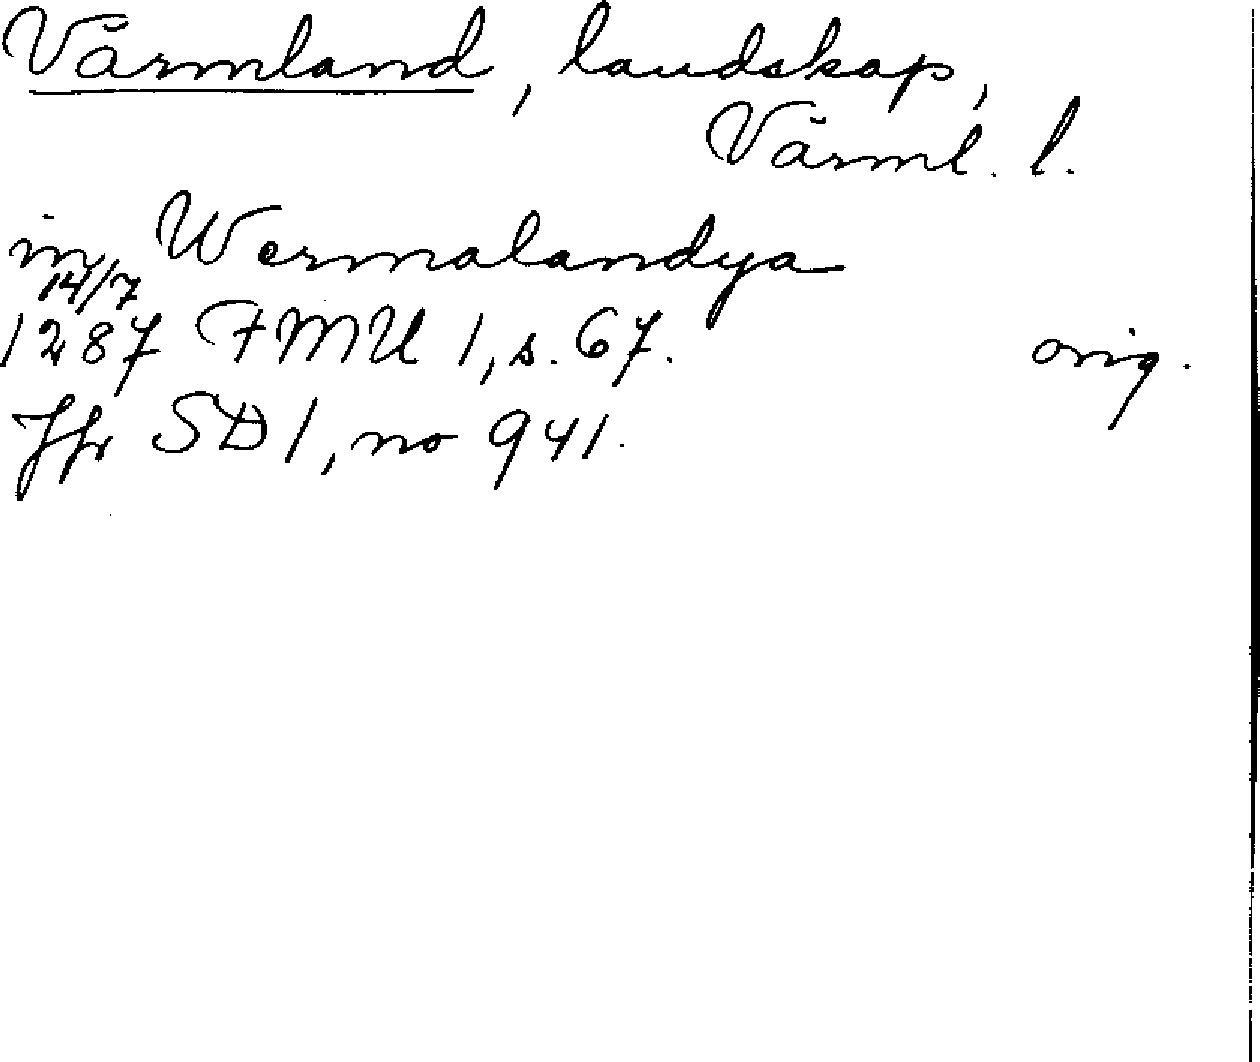 Värmland, landskap,
Värml. l.
in Wermalandya
14/7
1287 FMU 1, s. 67. orig.
Jfr SD 1, no 941.